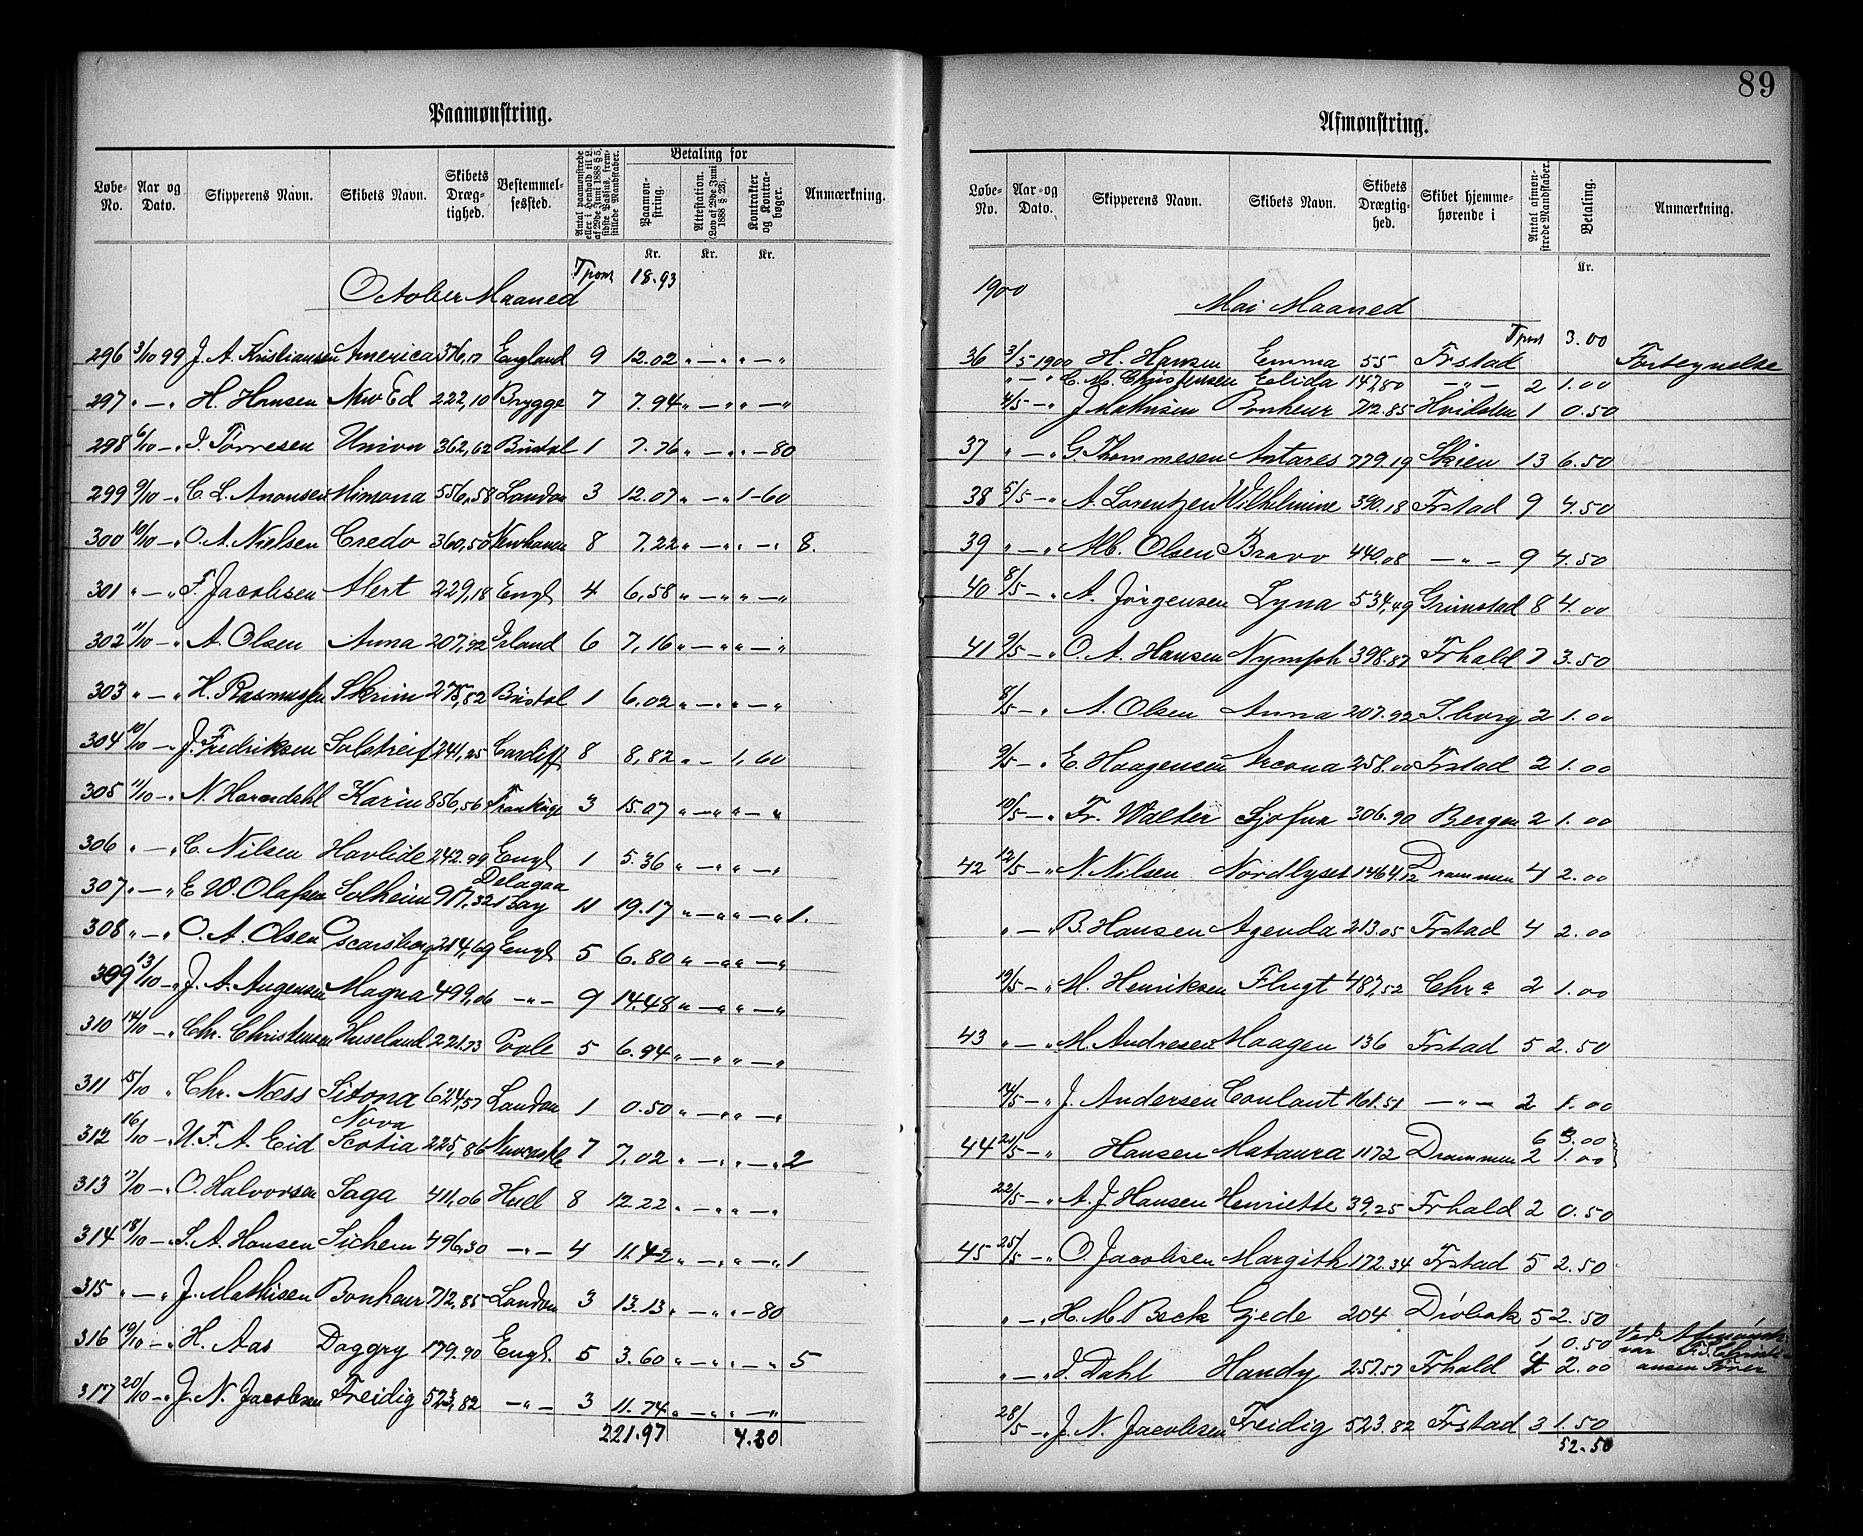 89
Paamønstring.
Løbe-No. Aar og Dato. Skipperens Navn. Skibets Navn. Skibets Dræg-tighed. Bestemmel-sessted. Antal paamønstrede eller i Henhold til L. af 29de Juni 1888 § 5, sidste Passus, frem-stillede Mandskaber. Betaling for Paamøn-string. Attestation. (Lov af 29de Juni 1888 § 23). Kontrakter og Kontra-bøger. Anmærkning.
Kr. Kr. Kr.
Tpont 18.93
October Maaned
296 3/10 99 J. A. Kristiansen America 376,17 England 9 12.02 " — " " — "
297 " — " H. Hansen New Ed 222,10 Brygge 7 7.94 " — " " — "
298 6/10 — " J. Torresen Union 362,62 Bristol 1 7.76 " — " " — 80
299 9/10 — " C. L. Anonsen Mimona 556,58 London 3 12.07 " — " 1-60
300 10/10 — " O. A. Nielsen Credo 360,50 Newhaven 8 7.22 " — " " — " 8.
301 " — " F. Jacobsen Alert 229,18 Engl 4 6,58 " — " " — "
302 11/10 — " A. Olsen Anna 207,92 Irland 6 7,16 " — " " — "
303 " — " H. Rasmussen Skrim 275,82 Bristol 1 6.02 " — " " — "
304 10/10 — " J. Fredriksen Solstreif 241,25 Cardiff 8 8,82 " — 1,60
305 11/10 — " N. Harmdahl Karin 856,56 3 15.07 " — " " — "
306 " — " C. Nilsen Havlide 242.99 Engl 1 5.36 " — " " — "
307 " — " E. W. Olafsen Solheim 917,32 Delagoa Bay 11 19.17 " — " " — " 1.
308 " — " O. A. Olsen Oscarsborg 214,69 Engl 5 6.80 " — " " — "
309 13/10 — " J. A. Augensen Magna 499,06 — " — 9 14.48 " — " " — "
310 14/10 — " Chr. Christensen Huseland 221.73 Poole 5 6.94 " — " " — "
311 15/10 " Chr. Næss Sitona 624,57 London 1 0.50 " — " " — "
312 16/10 — " U. F. A. Eid Nova Scotia 225,86 Newcastle 7 7.02 " — " " — " 2
313 17/10 — " O. Halvorsen Saga 411,06 Hull 8 12.22 " — " " — "
314 18/10 — " S. A. Hansen Sichem 496,30 — " — 4 11.42 " — " " — " 1
315 " — " J. Mathisen Bonheur 712,85 London 3 13.13 " — " " — 80
316 19/10 — " H. Aas Daggry 179.90 Engl. 5 3.60 " — " " — " 5
317 20/10 — " J. N. Jacobsen Freidig 523,82 — " — 3 11.74 " — " " — "
221.97 4.80
Afmønstring.
Løbe-No. Aar og Dato. Skipperens Navn. Skibets Navn. Skibets Drægtig-hed. Skibet hjemme-hørende i Antal afmøn-strede Mandskaber. Betaling. Anmærkning.
Kr.
1900 Mai Maaned
Tpont 3.00
36 3/5 1900 H. Hansen Emma 55 Frstad Fortegnelse
" — " C. M. Christensen Eolida 147,80 — " — 2 1.00
4/5 — " J. Mathisen Bonheur 712.85 Hvidsten 1 0.50
37 " — " G. Thommesen Antares 779.19 Skien 13 6.50
38 5/5 — " A. Lorentzen Wilhelmine 390.18 Frstad 9 4.50
39 " — " Alb. Olsen Bravo 440.08 — " — 9 4.50
40 8/5 — " A. Jørgensen Lyna 534,49 Grimstad 8 4.00
41 9/5 — " O. A. Hansen Nymph 398.87 Frhald 7 3.50
8/5 — " A. Olsen Anna 207.92 S.borg 2 1.00
9/5 — " E. Haagensen Arcona 258.00 Frstad 2 1.00
10/5 — " Fr. Walter Sjofna 306.90 Bergen 2 1.00
42 12/5 — " N. Nilsen Nordlyset 1464.12 Drammen 4 2.00
" — " B. Hansen Agenda 213.05 Frstad 4 2.00
19/5 — " M. Henriksen Flugt 487,52 Chra 2 1.00
43 " — " M. Andresen Maagen 136 Frstad 5 2.50
14/5 — " J. Andersen Coulant 161.51 — " — 2 1.00
6 3.00
44 21/5 — " Hansen Mataura 1172 Drammen 2 1.00
22/5 — " A. J. Hansen Henriette 39,25 Frhald 2 0.50
45 25/5 — " O. Jacobsen Margith 172.34 Frstad 5 2.50
" — " H. M. Beck Gjede 204 Drøbak 5 2.50
1 0.50 Ved Afmønst.
" — " J. Dahl Handy 257.57 Frhald 4 2.00 var ansen Fører
28/5 — " J. N. Jacobsen Freidig 523.82 Frstad 3 1.50
52.50